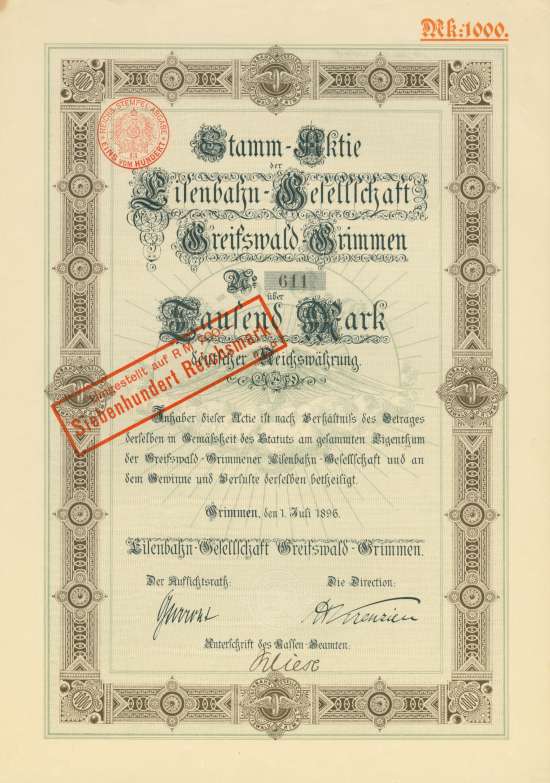 Mk:1000.
REICHS-STEMPEL-ABGABE
EINS VOM HUNDERT
Stamm-Aktie
der
Eisenbahn-Gesellschaft
Greifswald-Grimmen
No: 611
über
Tausend Mark
deutscher Reichswährung.
Umgestellt auf R.M. 700
Siebenhundert Reichsmark
Inhaber dieser Actie ist nach Verhältniss des Betrages
derselben in Gemässheit des Statuts am gesammten Eigenthum
der Greifswald-Grimmener Eisenbahn-Gesellschaft und an
dem Gewinne und Verluste derselben betheiligt.
Grimmen, den 1. Juli 1896.
Eisenbahn-Gesellschaft Greifswald-Grimmen.
Der Aufsichtsrath: Die Direction:
Unterschrift des Kassen-Beamten: